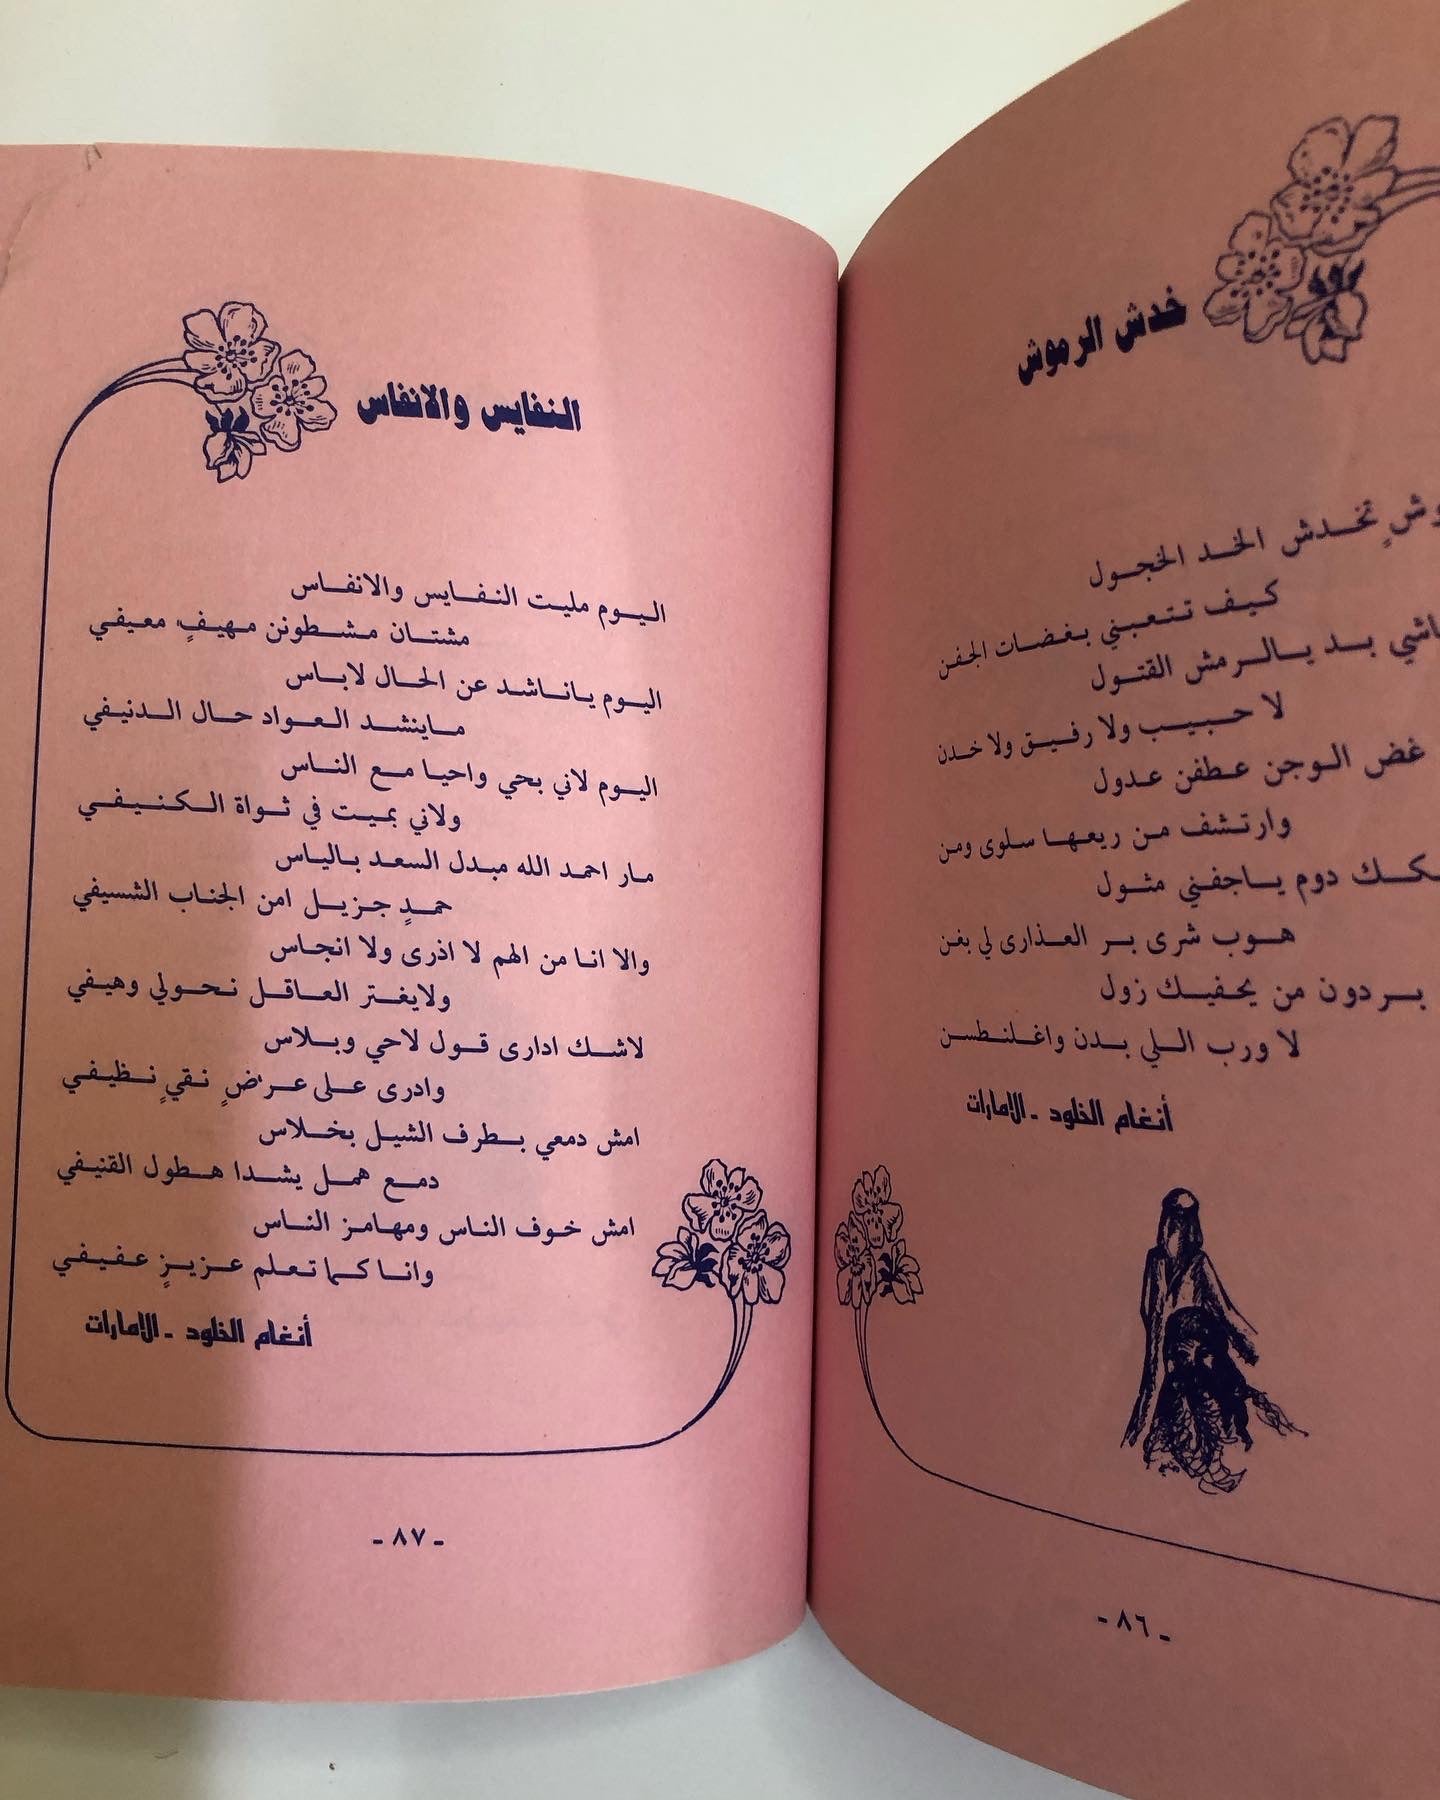 خدش الرموش
تخدش الخد الخجول
كيف تتعبني بغضات الجفن
بد يالرمش القتول
لا حبيب ولا رفيق ولا خدن
غض الوجن عطفن عدول
وارتشف من ريعها سلوى ومن
دوم ياجفني مثول
هوب شرى بر العذارى لي بغن
بردون من يحفيك زول
لا ورب اللي بدن واغلنطسن
أنغام الخلود - الامارات
- ٨٦ -
النفايس والانفاس
اليوم مليت النفايس والانفاس
مشتان مشطونن مهيفٍ معيفي
اليوم ياناشد عن الحال لاباس
ماينشد العواد حال الدنيفي
اليوم لاني بحي واحيا مع الناس
ولاني بميت في ثواة الكنيفي
مار احمد الله مبدل السعد بالياس
حمدٍ جزيل امن الجناب الشسيفي
والا انا من الهم لا اذرى ولا انجاس
ولايغتر العاقل نحولي وهيفي
لاشك ادارى قول لاحي وبلاس
وادرى على عرضٍ نقيٍ نظيفي
امش دمعي بطرف الشيل بخلاس
دمع همل يشدا هطول القنيفي
امش خوف الناس ومهامز الناس
وانا كما تعلم عزيزٍ عفيفي
أنغام الخلود - الامارات
- ٨٧ -